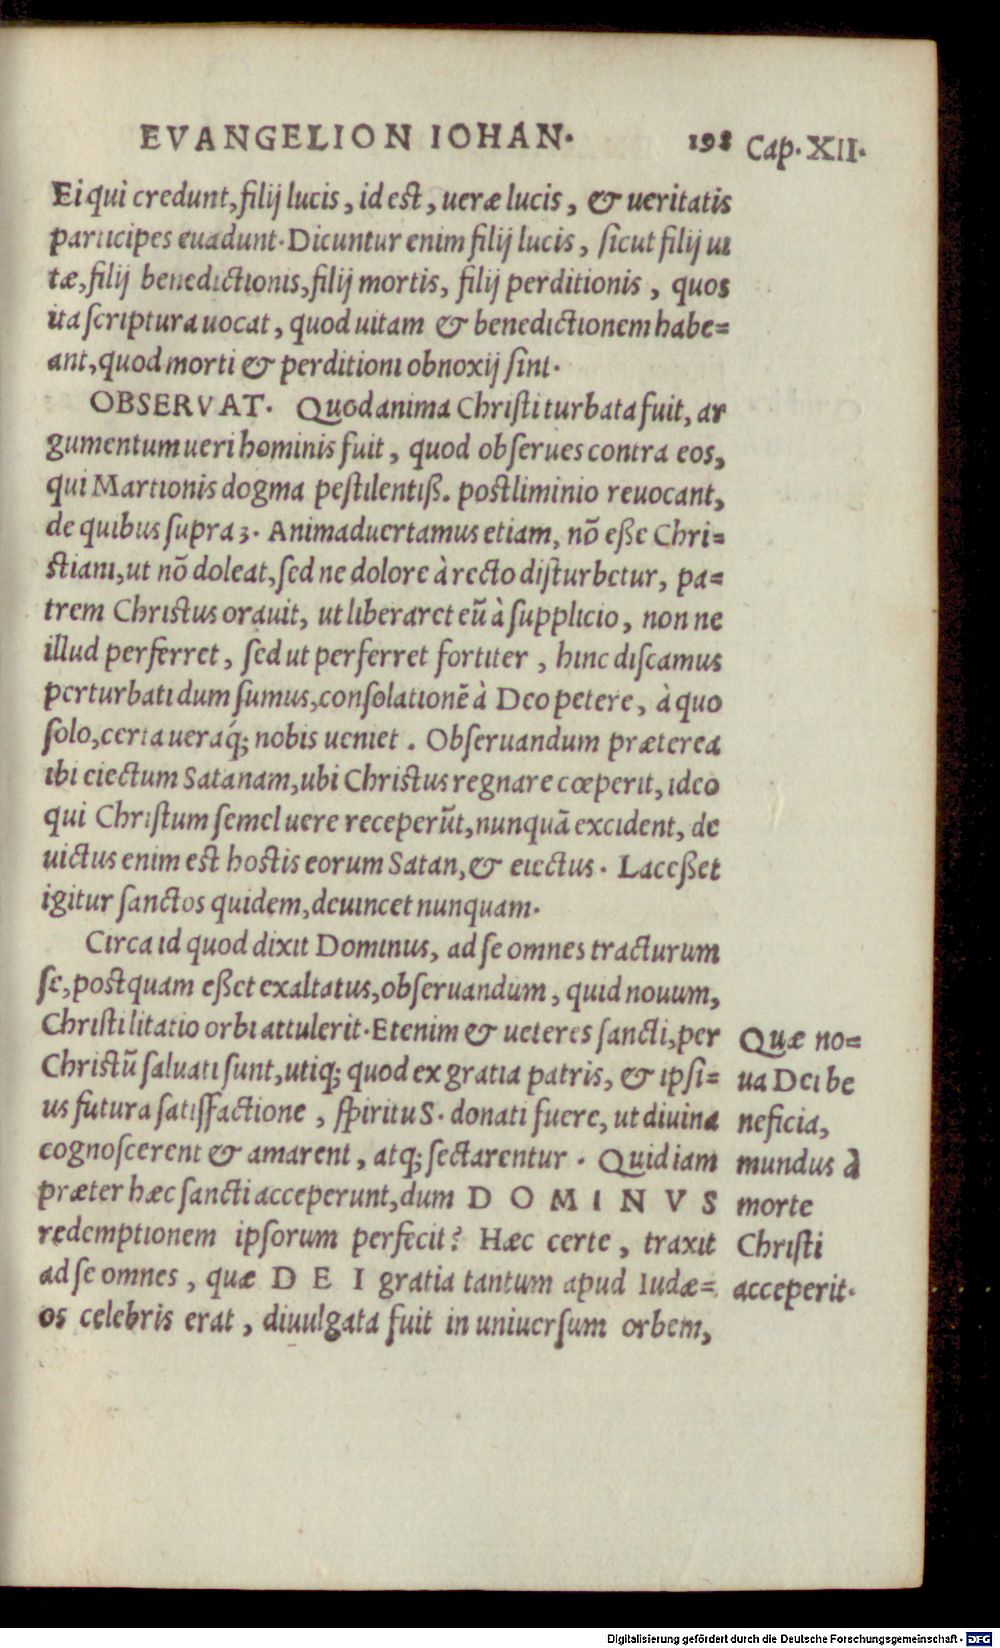 EVANGELION IOHAN. 198 Cap. XII.
Ei qui credunt, filij lucis, id est, ueræ lucis, & ueritatis
participes euadunt. Dicuntur enim filij lucis, sicut filij ui
tæ, filij benedictionis, filij mortis, filij perditionis, quos
ita scriptura uocat, quod uitam & benedictionem habe=
ant, quod morti & perditioni obnoxij sint.
OBSERVAT. Quod anima Christi turbata fuit, ar
gumentum ueri hominis fuit, quod obserues contra eos,
qui Martionis dogma pestilentiß. postliminio reuocant,
de quibus supra 3. Animaduertamus etiam, nō eße Chri=
stiani, ut nō doleat, sed ne dolore à recto disturbetur, pa=
trem Christus orauit, ut liberaret eū à supplicio, non ne
illud perferret, sed ut perferret fortiter, hinc discamus
perturbati dum sumus, consolationē à Deo petere, à quo
solo, certa ueráq; nobis ueniet. Obseruandum præterea
ibi eiectum Satanam, ubi Christus regnare cœperit, ideo
qui Christum semel uere receperūt, nunquā excident, de
uictus enim est hostis eorum Satan, & eiectus. Laceßet
igitur sanctos quidem, deuincet nunquam.
Circa id quod dixit Dominus, ad se omnes tracturum
se, postquam eßet exaltatus, obseruandum, quid nouum,
Christi litatio orbi attulerit. Etenim & ueteres sancti, per
Christū saluati sunt, utiq; quod ex gratia patris, & ipsi=
us futura satisfactione, spiritu S. donati fuere, ut diuina
cognoscerent & amarent, atq; sectarentur. Quid iam
præter hæc sancti acceperunt, dum DOMINVS
redemptionem ipsorum perfecit? Hæc certe, traxit
ad se omnes, quæ DEI gratia tantum apud Iudæ=
os celebris erat, diuulgata fuit in uniuersum orbem,
Quæ no=
ua Dei be
neficia,
mundus à
morte
Christi
acceperit.
Digitalisierung gefördert durch die Deutsche Forschungsgemeinschaft - DFG